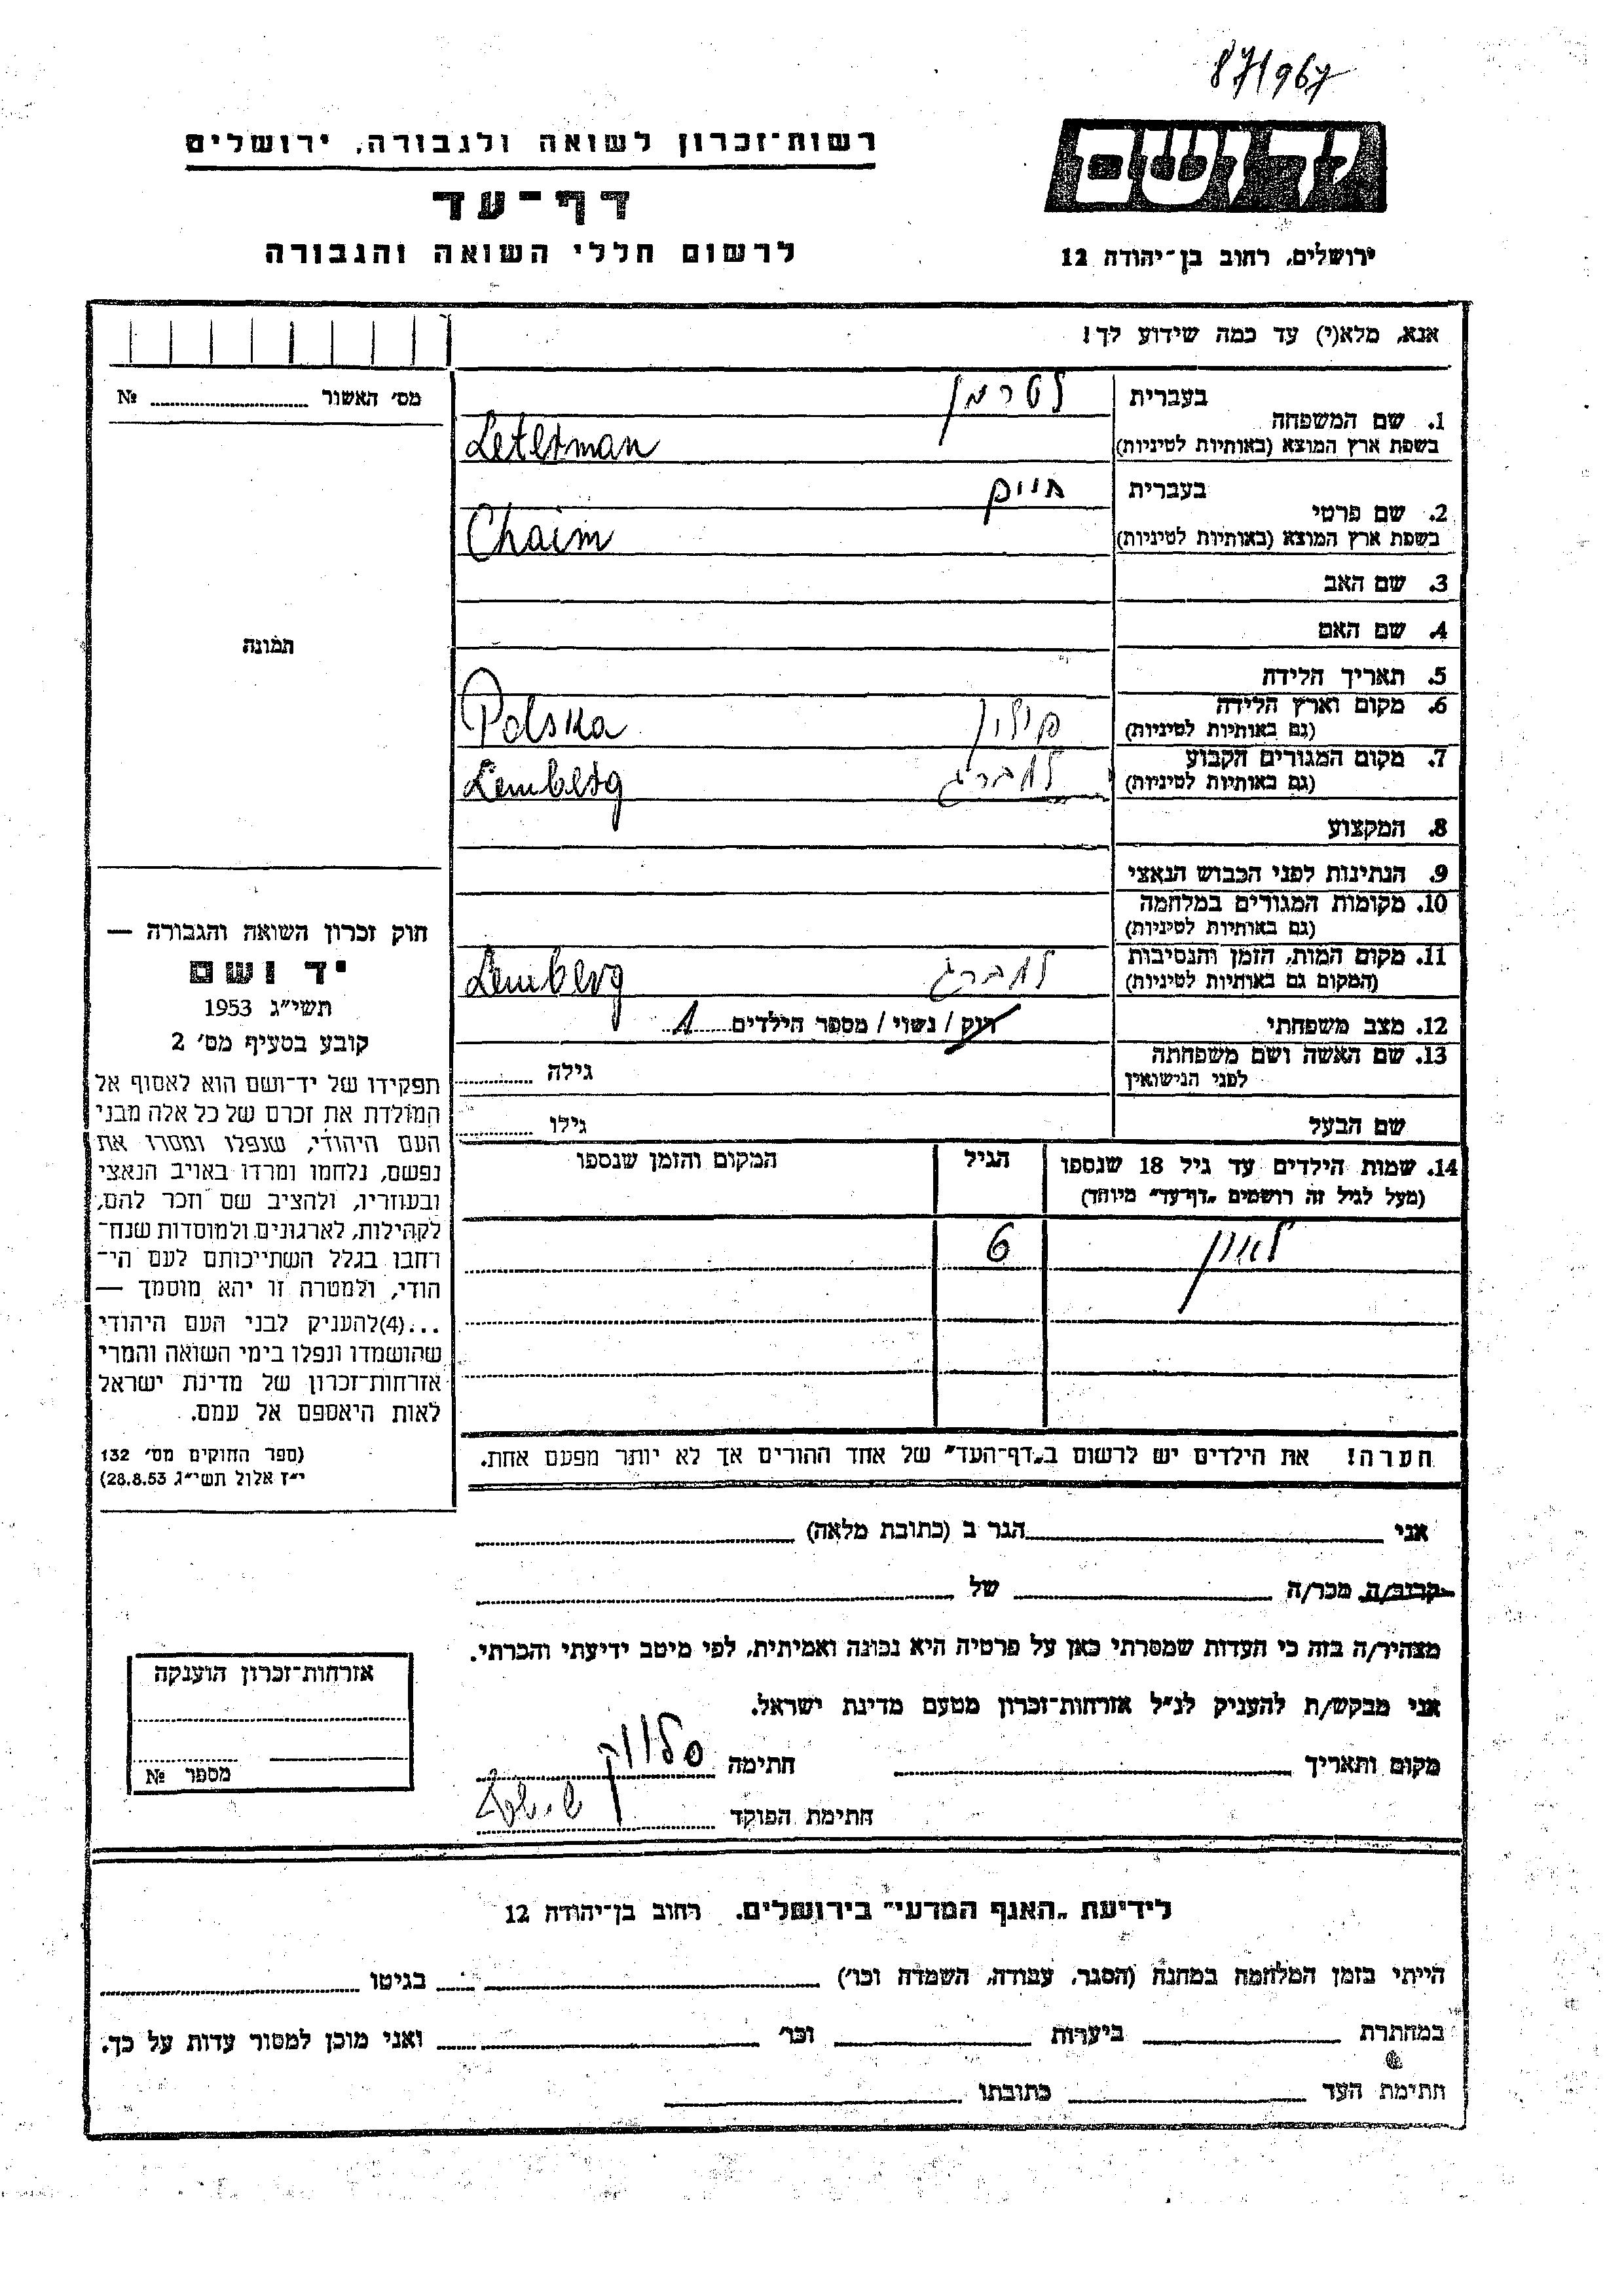 87/967
רשות־זכרון לשואה ולגבורה, ירושלים
דף־עד
לרשום חללי השואה והגבורה
יד ושם
ירושלים, רחוב בן־יהודה 12
אנא, מלא(י) עד כמה שידוע לך!
מס׳ האשור ........ №
בעברית לטרמן
1. שם המשפחה
בשפת ארץ המוצא (באותיות לטיניות) Leterman
בעברית חיים
2. שם פרטי
בשפת ארץ המוצא (באותיות לטיניות) Chaim
3. שם האב
4. שם האם
תמונה
5. תאריך הלידה
6. מקום וארץ הלידה
(גם באותיות לטיניות) פולין Polska
7. מקום המגורים הקבוע
(גם באותיות לטיניות) למברג Lemberg
8. המקצוע
9. הנתינות לפני הכבוש הנאצי
10. מקומות המגורים במלחמה
(גם באותיות לטיניות)
11. מקום המות, הזמן והנסיבות
(המקום גם באותיות לטיניות) למברג Lemberg
12. מצב משפחתי רוק / נשוי / מספר הילדים 1
13. שם האשה ושם משפחתה
לפני הנישואין גילה ........
שם הבעל גילו ........
חוק זכרון השואה והגבורה —
יד ושם
תשי״ג 1953
קובע בסעיף מס׳ 2
תפקידו של יד־ושם הוא לאסוף אל
המולדת את זכרם של כל אלה מבני
העם היהודי, שנפלו ומסרו את
נפשם, נלחמו ומרדו באויב הנאצי
ובעוזריו, ולהציב שם וזכר להם,
לקהילות, לארגונים ולמוסדות שנח־
רחבו בגלל השתייכותם לעם הי־
הודי, ולמטרה זו יהא מוסמך —
...(4)להעניק לבני העם היהודי
שהושמדו ונפלו בימי השואה והמרי
אזרחות־זכרון של מדינת ישראל
לאות היאספם אל עמם.
(ספר החוקים מס׳ 132
י״ז אלול תשי״ג 28.8.53)
14. שמות הילדים עד גיל 18 שנספו הגיל המקום והזמן שנספו
(מעל לגיל זה רושמים „דף־עד״ מיוחד)
לאון 6
הערה! את הילדים יש לרשום ב„דף־העד״ של אחד ההורים אך לא יותר מפעם אחת.
אני ........ הגר ב (כתובת מלאה) ........
קרוב/ה מכר/ה ........ של ........
מצהיר/ה בזה כי העדות שמסרתי כאן על פרטיה היא נכונה ואמיתית, לפי מיטב ידיעתי והכרתי.
אני מבקש/ת להעניק לנ״ל אזרחות־זכרון מטעם מדינת ישראל.
מקום ותאריך ........ חתימה
חתימת הפוקד
אזרחות־זכרון הוענקה
מספר №
לידיעת „האגף המדעי״ בירושלים. רחוב בן־יהודה 12
הייתי בזמן המלחמה במחנה (הסגר, עבודה, השמדה וכו׳) ........ בגיטו ........
במחתרת ........ ביערות ........ וכו׳ ........ ואני מוכן למסור עדות על כך.
חתימת העד ........ כתובתו ........